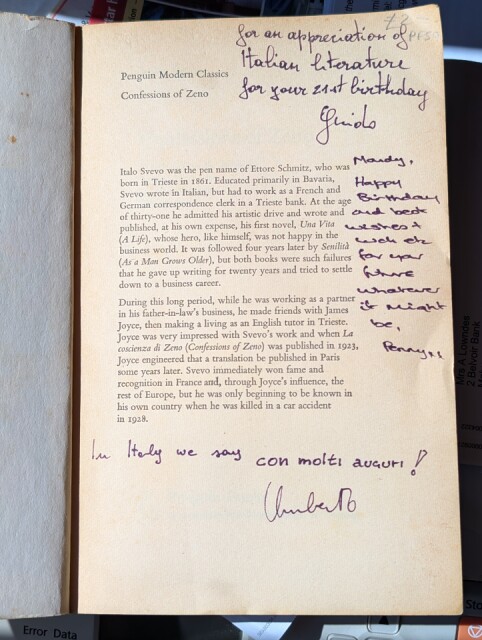 for an appreciation of
Italian literature
for your 21st birthday
Guido
Penguin Modern Classics
Confessions of Zeno
Italo Svevo was the pen name of Ettore Schmitz, who was
born in Trieste in 1861. Educated primarily in Bavaria,
Svevo wrote in Italian, but had to work as a French and
German correspondence clerk in a Trieste bank. At the age
of thirty-one he admitted his artistic drive and wrote and
published, at his own expense, his first novel, Una Vita
(A Life), whose hero, like himself, was not happy in the
business world. It was followed four years later by Senilità
(As a Man Grows Older), but both books were such failures
that he gave up writing for twenty years and tried to settle
down to a business career.
During this long period, while he was working as a partner
in his father-in-law's business, he made friends with James
Joyce, then making a living as an English tutor in Trieste.
Joyce was very impressed with Svevo's work and when La
coscienza di Zeno (Confessions of Zeno) was published in 1923,
Joyce engineered that a translation be published in Paris
some years later. Svevo immediately won fame and
recognition in France and, through Joyce's influence, the
rest of Europe, but he was only beginning to be known in
his own country when he was killed in a car accident
in 1928.
Mandy,
Happy
Birthday
and best
wishes &
luck etc
for your
future
whatever
it might
be,
Penny xx
In Italy we say con molti auguri!
Umberto
Mrs A Lowndes
2 Belvoir Bank
Error Data